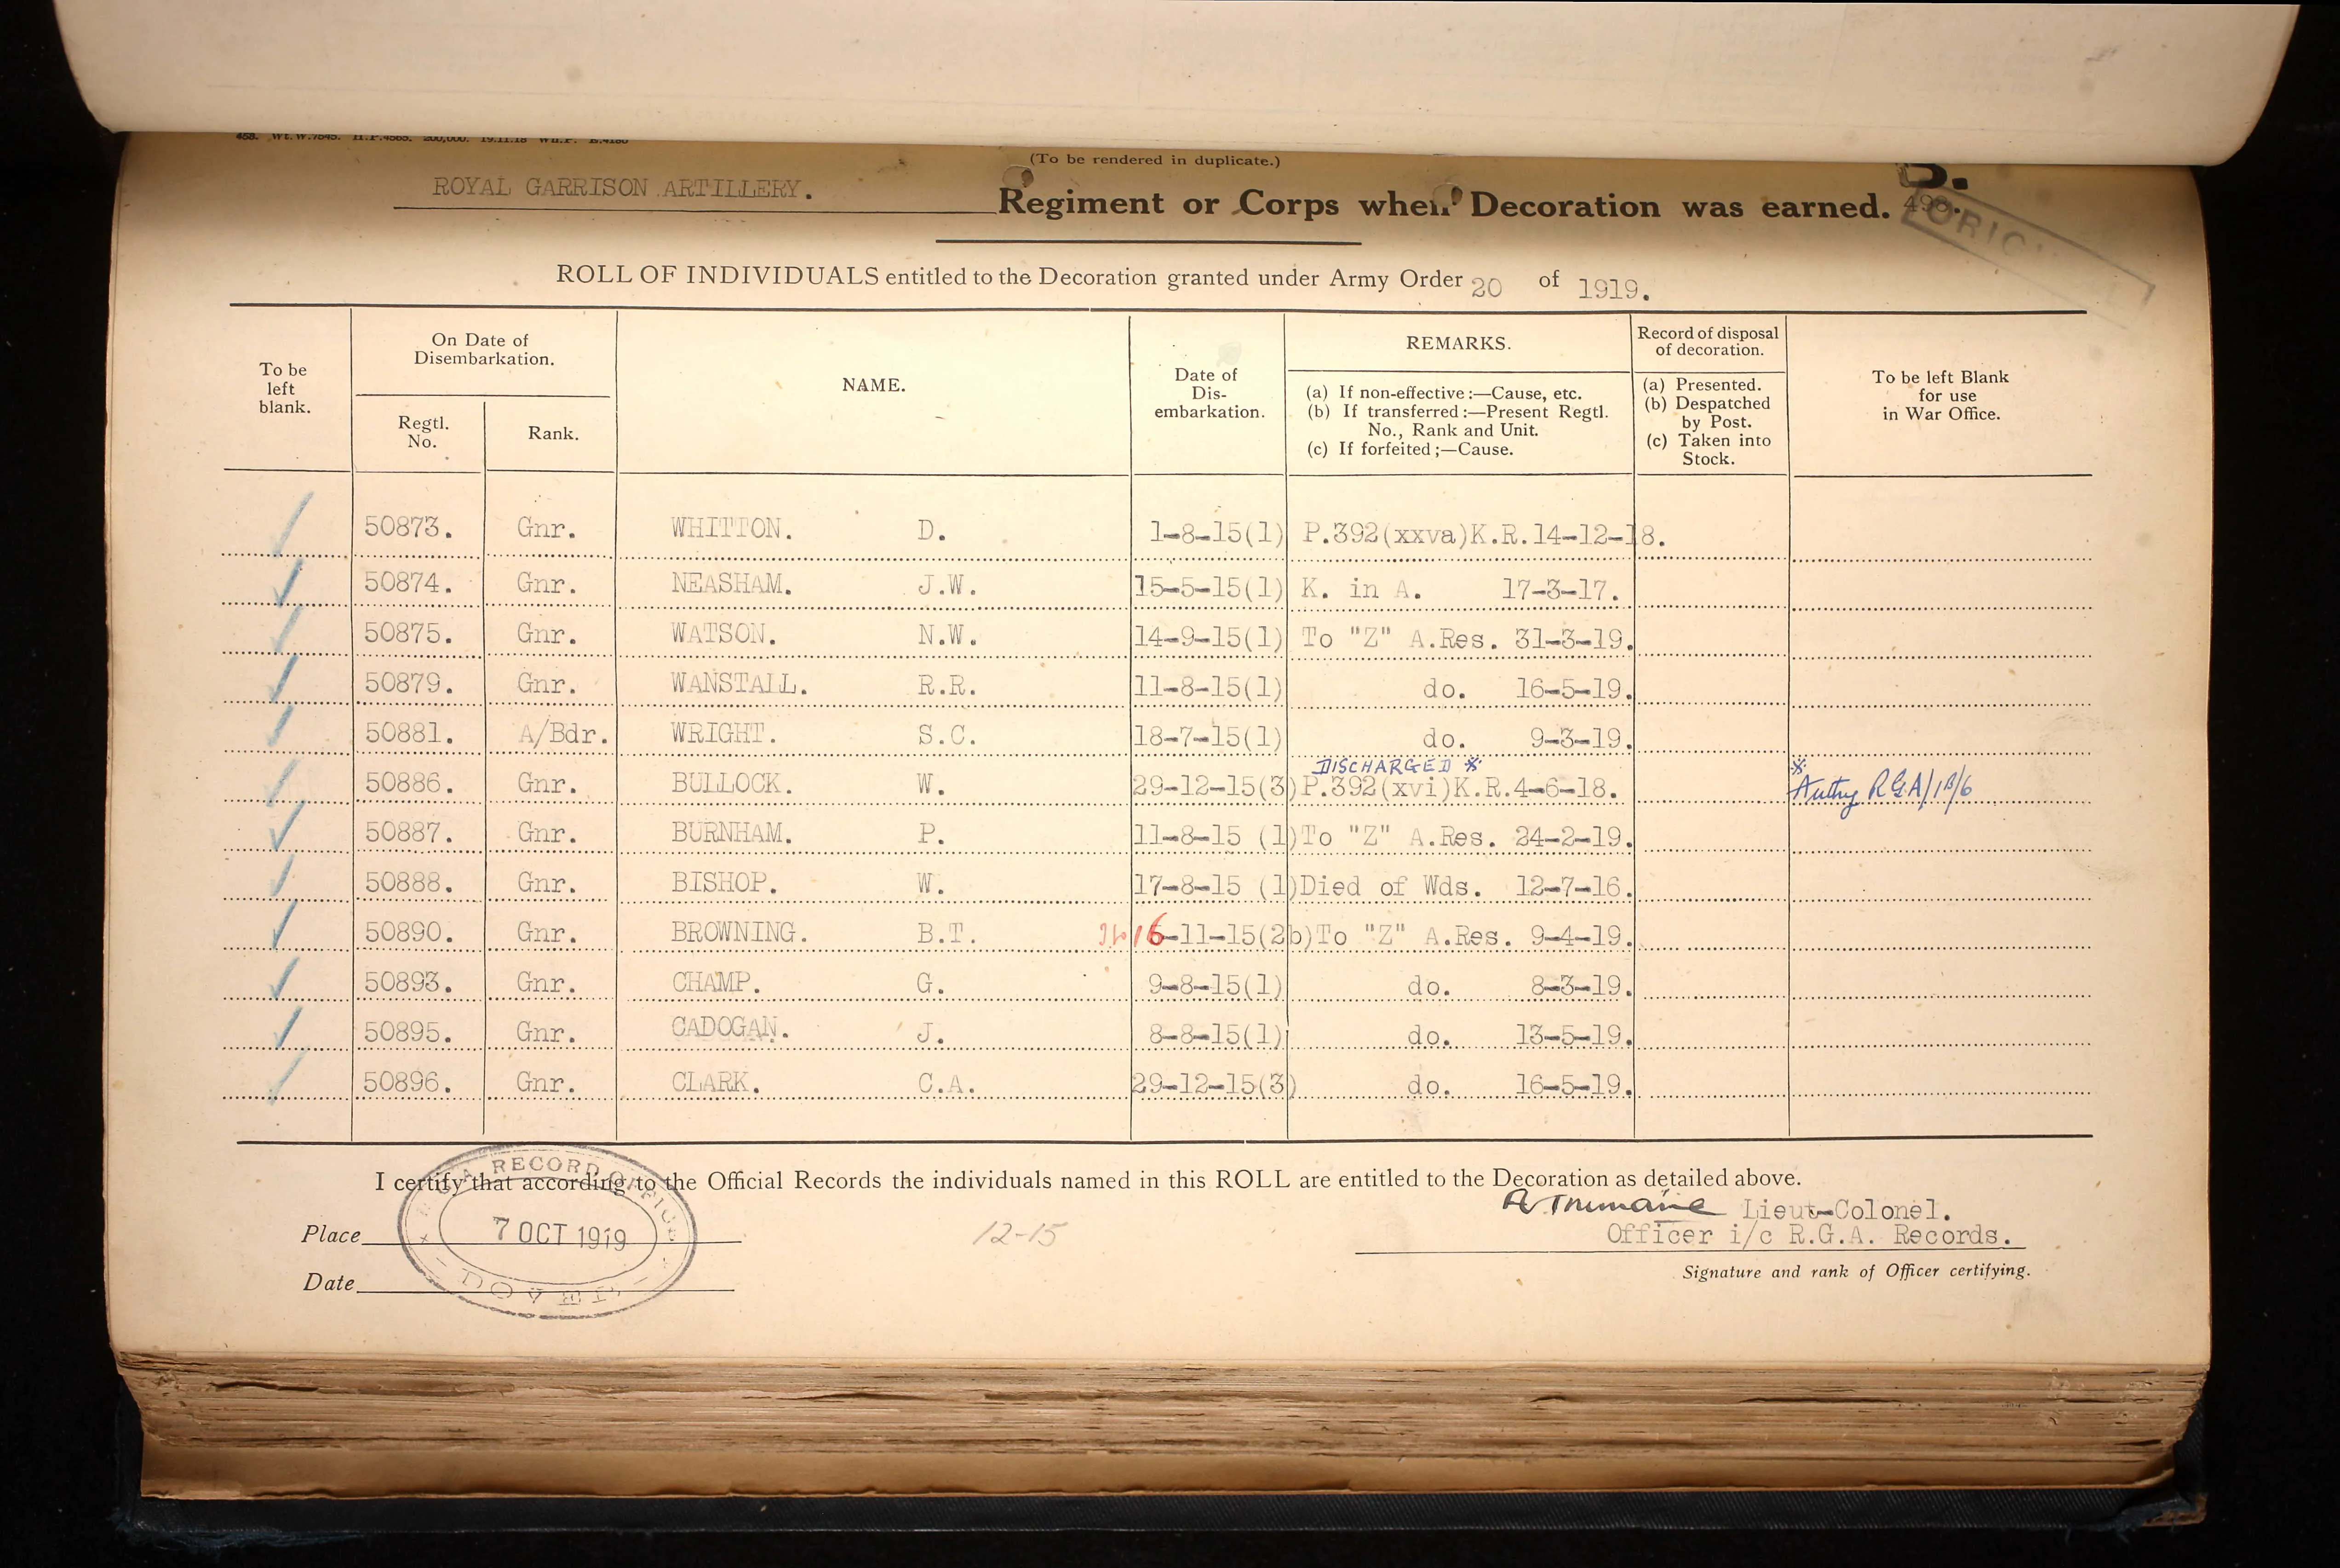 458. Wt.W.7845. H.P.4565. 200,000. 19.11.18 B.4180
(To be rendered in duplicate.)
B.
ROYAL GARRISON ARTILLERY. Regiment or Corps when Decoration was earned. 498.
ORIGINAL
ROLL OF INDIVIDUALS entitled to the Decoration granted under Army Order 20 of 1919.
To be left blank.
On Date of Disembarkation.
Regtl. No.
Rank.
NAME.
Date of Dis-embarkation.
REMARKS.
(a) If non-effective:—Cause, etc.
(b) If transferred:—Present Regtl. No., Rank and Unit.
(c) If forfeited;—Cause.
Record of disposal of decoration.
(a) Presented.
(b) Despatched by Post.
(c) Taken into Stock.
To be left Blank for use in War Office.
50873. Gnr. WHITTON. D. 1-8-15(1) P.392(xxva)K.R.14-12-18.
50874. Gnr. NEASHAM. J.W. 15-5-15(1) K. in A. 17-3-17.
50875. Gnr. WATSON. N.W. 14-9-15(1) To "Z" A.Res. 31-3-19.
50879. Gnr. WANSTALL. R.R. 11-8-15(1) do. 16-5-19.
50881. A/Bdr. WRIGHT. S.C. 18-7-15(1) do. 9-3-19.
DISCHARGED ※ ※
50886. Gnr. BULLOCK. W. 29-12-15(3) P.392(xvi)K.R.4-6-18. Authy RGA/1B/6
50887. Gnr. BURNHAM. P. 11-8-15 (1) To "Z" A.Res. 24-2-19.
50888. Gnr. BISHOP. W. 17-8-15 (1) Died of Wds. 12-7-16.
50890. Gnr. BROWNING. B.T. 16-11-15(2b) To "Z" A.Res. 9-4-19.
50893. Gnr. CHAMP. G. 9-8-15(1) do. 8-3-19.
50895. Gnr. CADOGAN. J. 8-8-15(1) do. 13-5-19.
50896. Gnr. CLARK. C.A. 29-12-15(3) do. 16-5-19.
I certify that according to the Official Records the individuals named in this ROLL are entitled to the Decoration as detailed above.
R.G.A. RECORD OFFICE
7 OCT 1919
DOVER
Place
Date
12-15
Lieut-Colonel.
Officer i/c R.G.A. Records.
Signature and rank of Officer certifying.